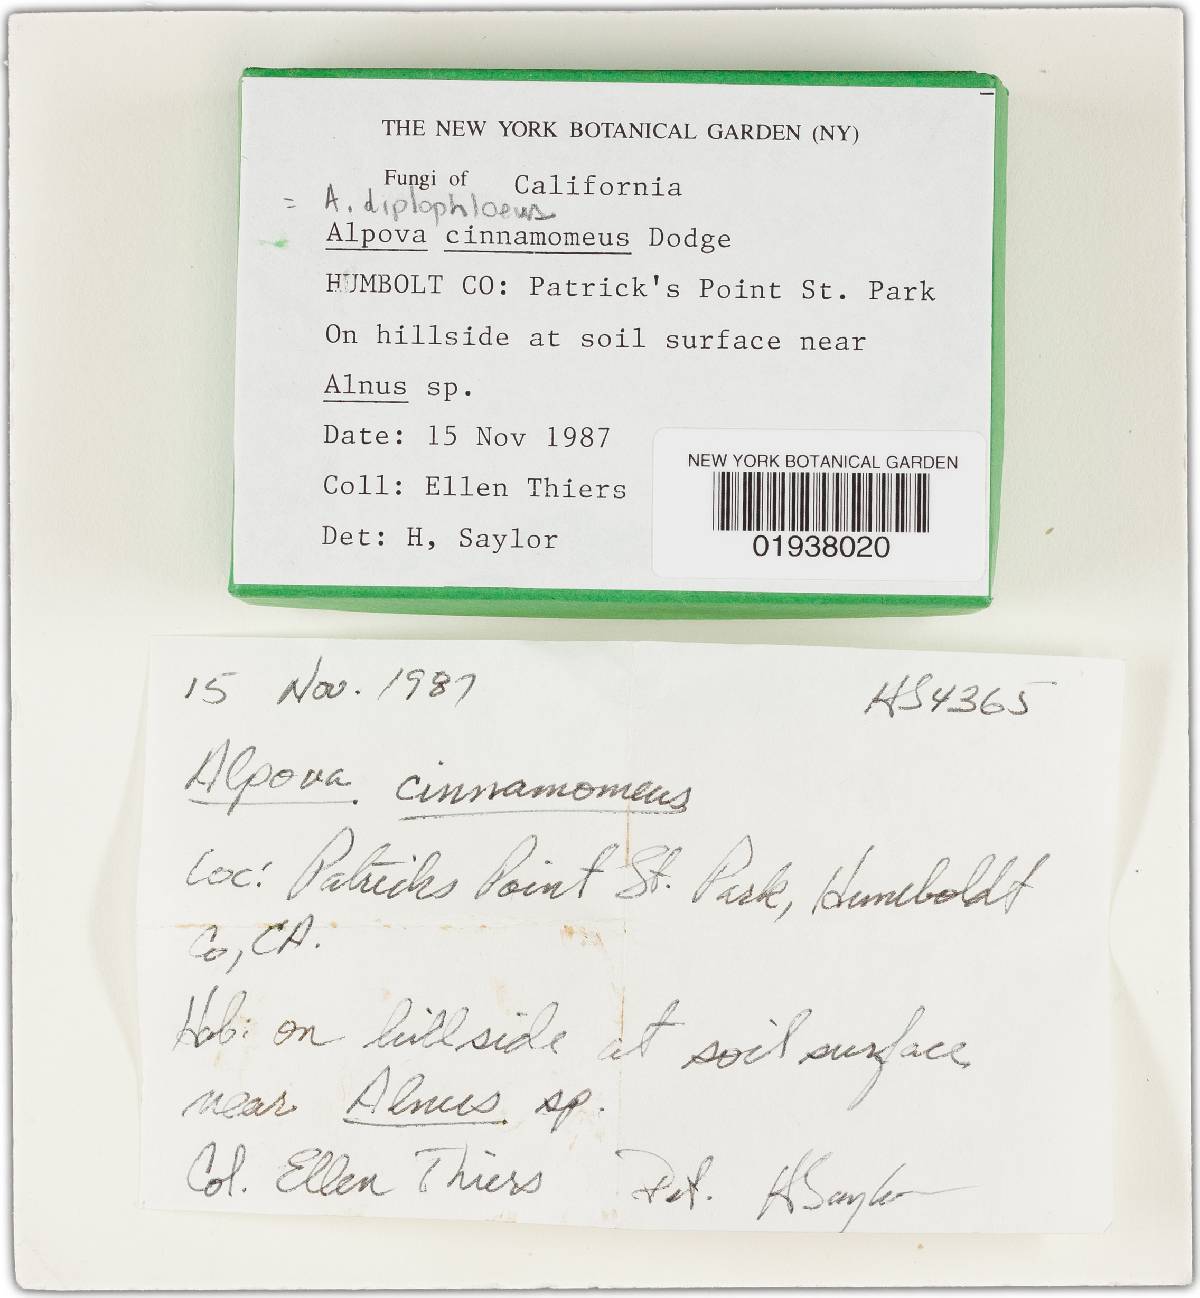 THE NEW YORK BOTANICAL GARDEN (NY)
Fungi of California
= A. diplophloeus
Alpova cinnamomeus Dodge
HUMBOLT CO: Patrick's Point St. Park
On hillside at soil surface near
Alnus sp.
Date: 15 Nov 1987
Coll: Ellen Thiers
Det: H, Saylor
NEW YORK BOTANICAL GARDEN
01938020
15 Nov. 1987 HS4365
Alpova cinnamomeus
Loc: Patricks Point St. Park, Humboldt
Co, CA.
Hab: on hillside at soil surface
near Alnus sp.
Col. Ellen Thiers Det. HSaylor